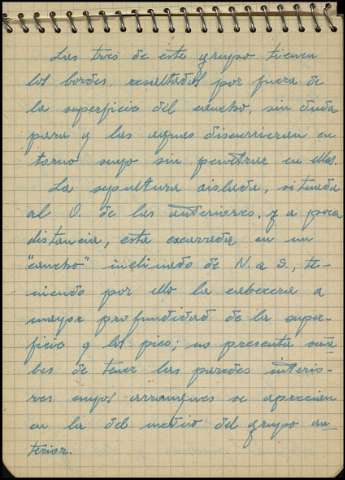 Las tres de este grupo tienen
los bordes resaltados por fuera de
la superficie del cancho, sin duda
para q las aguas discurrieran en
torno suyo sin penetrar en ellas.
La sepultura aislada, situada
al O. de las anteriores, y a poca
distancia, está excavada en un
"cancho" inclinado de N. a S., te-
niendo por ello la cabecera a
mayor profundidad de la super-
ficie q los pies; no presenta
de tener las paredes interio-
res cuyos arranques se aprecian
en la del medio del grupo an-
terior.